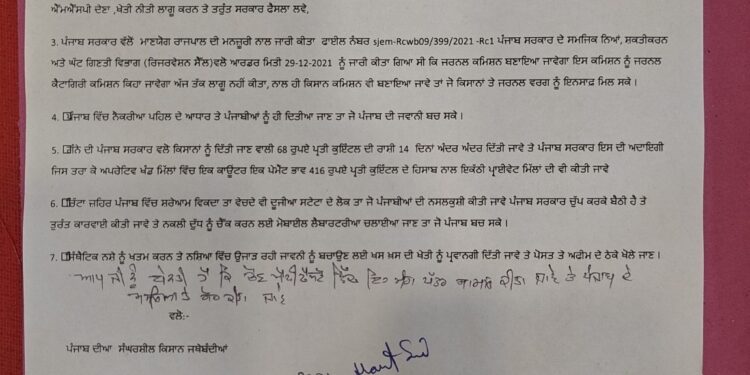 ਐੱਮਐੱਸਪੀ ਦੇਣਾ ,ਖੇਤੀ ਨੀਤੀ ਲਾਗੂ ਕਰਨ ਤੇ ਤਰੁੰਤ ਸਰਕਾਰ ਫੈਸਲਾ ਲਵੇ,
3. ਪੰਜਾਬ ਸਰਕਾਰ ਵੱਲੋਂ ਮਾਣਯੋਗ ਰਾਜਪਾਲ ਦੀ ਮਨਜੂਰੀ ਨਾਲ ਜਾਰੀ ਕੀਤਾ ਫਾਈਲ ਨੰਬਰ sjem-Rcwb09/399/2021 -Rc1 ਪੰਜਾਬ ਸਰਕਾਰ ਦੇ ਸਮਜਿਕ ਨਿਆਂ, ਸ਼ਕਤੀਕਰਨ
ਅਤੇ ਘੱਟ ਗਿਣਤੀ ਵਿਭਾਗ (ਰਿਜਰਵੇਸ਼ਨ ਸੈੱਲ)ਵਲੋ ਆਰਡਰ ਮਿਤੀ 29-12-2021 ਨੂੰ ਜਾਰੀ ਕੀਤਾ ਗਿਆ ਸੀ ਕਿ ਜਰਨਲ ਕਮਿਸ਼ਨ ਬਣਾਇਆ ਜਾਵੇਗਾ ਇਸ ਕਮਿਸ਼ਨ ਨੂੰ ਜਰਨਲ
ਕੈਟਾਗਿਰੀ ਕਮਿਸ਼ਨ ਕਿਹਾ ਜਾਵੇਗਾ ਅੱਜ ਤੱਕ ਲਾਗੂ ਨਹੀਂ ਕੀਤਾ, ਨਾਲ ਹੀ ਕਿਸਾਨ ਕਮਿਸ਼ਨ ਵੀ ਬਣਾਇਆ ਜਾਵੇ ਤਾਂ ਜੋ ਕਿਸਾਨਾਂ ਤੇ ਜਰਨਲ ਵਰਗ ਨੂੰ ਇਨਸਾਫ਼ ਮਿਲ ਸਕੇ ।
4. ਪੰਜਾਬ ਵਿੱਚ ਨੋਕਰੀਆ ਪਹਿਲ ਦੇ ਆਧਾਰ ਤੇ ਪੰਜਾਬੀਆਂ ਨੂੰ ਹੀ ਦਿਤੀਆ ਜਾਣ ਤਾ ਜੋ ਪੰਜਾਬ ਦੀ ਜਵਾਨੀ ਬਚ ਸਕੇ ।
5. ਦੀ ਪੰਜਾਬ ਸਰਕਾਰ ਵਲੋ ਕਿਸਾਨਾਂ ਨੂੰ ਦਿੱਤੀ ਜਾਣ ਵਾਲੀ 68 ਰੁਪਏ ਪ੍ਰਤੀ ਕੁਇੰਟਲ ਦੀ ਰਾਸ਼ੀ 14 ਦਿਨਾਂ ਅੰਦਰ ਅੰਦਰ ਦਿੱਤੀ ਜਾਵੇ ਤੇ ਪੰਜਾਬ ਸਰਕਾਰ ਇਸ ਦੀ ਅਦਾਇਗੀ
ਜਿਸ ਤਰਾ ਕੋ ਅਪਰੇਟਿਵ ਖੰਡ ਮਿੱਲਾਂ ਵਿੱਚ ਇਕ ਕਾਊਟਰ ਇਕ ਪੇਮੇਂਟ ਭਾਵ 416 ਰੁਪਏ ਪ੍ਰਤੀ ਕੁਇੰਟਲ ਦੇ ਹਿਸਾਬ ਨਾਲ ਇਕੱਠੀ ਪ੍ਰਾਈਵੇਟ ਮਿੱਲਾਂ ਦੀ ਵੀ ਕੀਤੀ ਜਾਵੇ
6. ਚਿੱਟਾ ਜ਼ਹਿਰ ਪੰਜਾਬ ਵਿੱਚ ਸਰੇਆਮ ਵਿਕਦਾ ਤਾ ਵੇਚਦੇ ਵੀ ਦੂਜੀਆ ਸਟੇਟਾ ਦੇ ਲੋਕ ਤਾ ਜੋ ਪੰਜਾਬੀਆਂ ਦੀ ਨਸਲਕੁਸ਼ੀ ਕੀਤੀ ਜਾਵੇ ਪੰਜਾਬ ਸਰਕਾਰ ਚੁੱਪ ਕਰਕੇ ਬੈਠੀ ਹੈ ਤੇ
ਤੁਰੰਤ ਕਾਰਵਾਈ ਕੀਤੀ ਜਾਵੇ ਤੇ ਨਕਲੀ ਦੁੱਧ ਨੂੰ ਚੈੱਕ ਕਰਨ ਲਈ ਮੋਬਾਈਲ ਲੈਬਾਰਟਰੀਆ ਚਲਾਈਆ ਜਾਣ ਤਾ ਜੋ ਪੰਜਾਬ ਬਚ ਸਕੇ ।
7. ਸਿੰਥੈਟਿਕ ਨਸ਼ੇ ਨੂੰ ਖਤਮ ਕਰਨ ਤੇ ਨਸ਼ਿਆ ਵਿੱਚ ਉਜਾੜ ਰਹੀ ਜਾਵਨੀ ਨੂੰ ਬਚਾਉਣ ਲਈ ਖਸ ਖ਼ਸ ਦੀ ਖੇਤੀ ਨੂੰ ਪ੍ਰਵਾਨਗੀ ਦਿੱਤੀ ਜਾਵੇ ਤੇ ਪੋਸਤ ਤੇ ਅਫੀਮ ਦੇ ਠੇਕੇ ਖੋਲੇ ਜਾਣ ।
ਆਪ ਜੀ ਨੂੰ ਬੇਨਤੀ ਹੈ ਕਿ ਚੋਣ ਮੈਨੀਫੈਸਟੋ ਵਿੱਚ ਇਹ ਮੰਗ ਪੱਤਰ ਸ਼ਾਮਲ ਕੀਤਾ ਜਾਵੇ ਤੇ ਪੰਜਾਬ ਦੇ
ਜਾਵੇ
ਵਲੋ:-
ਪੰਜਾਬ ਦੀਆ ਸੰਘਰਸ਼ੀਲ ਕਿਸਾਨ ਜਥੇਬੰਦੀਆਂ